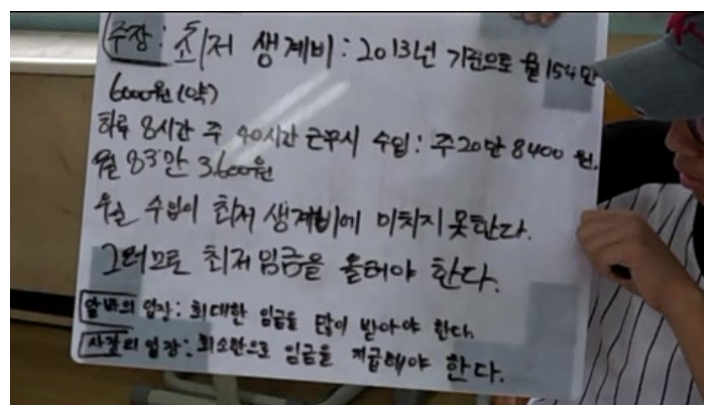 주장: 최저 생계비: 2013년 기준으로 월 154만
6000원(약)
하루 8시간 주 40시간 근무시 수입: 주20만 8400 원.
월 83만 3.600원
월 수입이 최저 생계비에 미치지 못한다.
그러므로 최저임금을 올려야 한다.
알바의 입장: 최대한 임금을 많이 받아야 한다.
사장의 입장: 최소한으로 임금을 지급해야 한다.